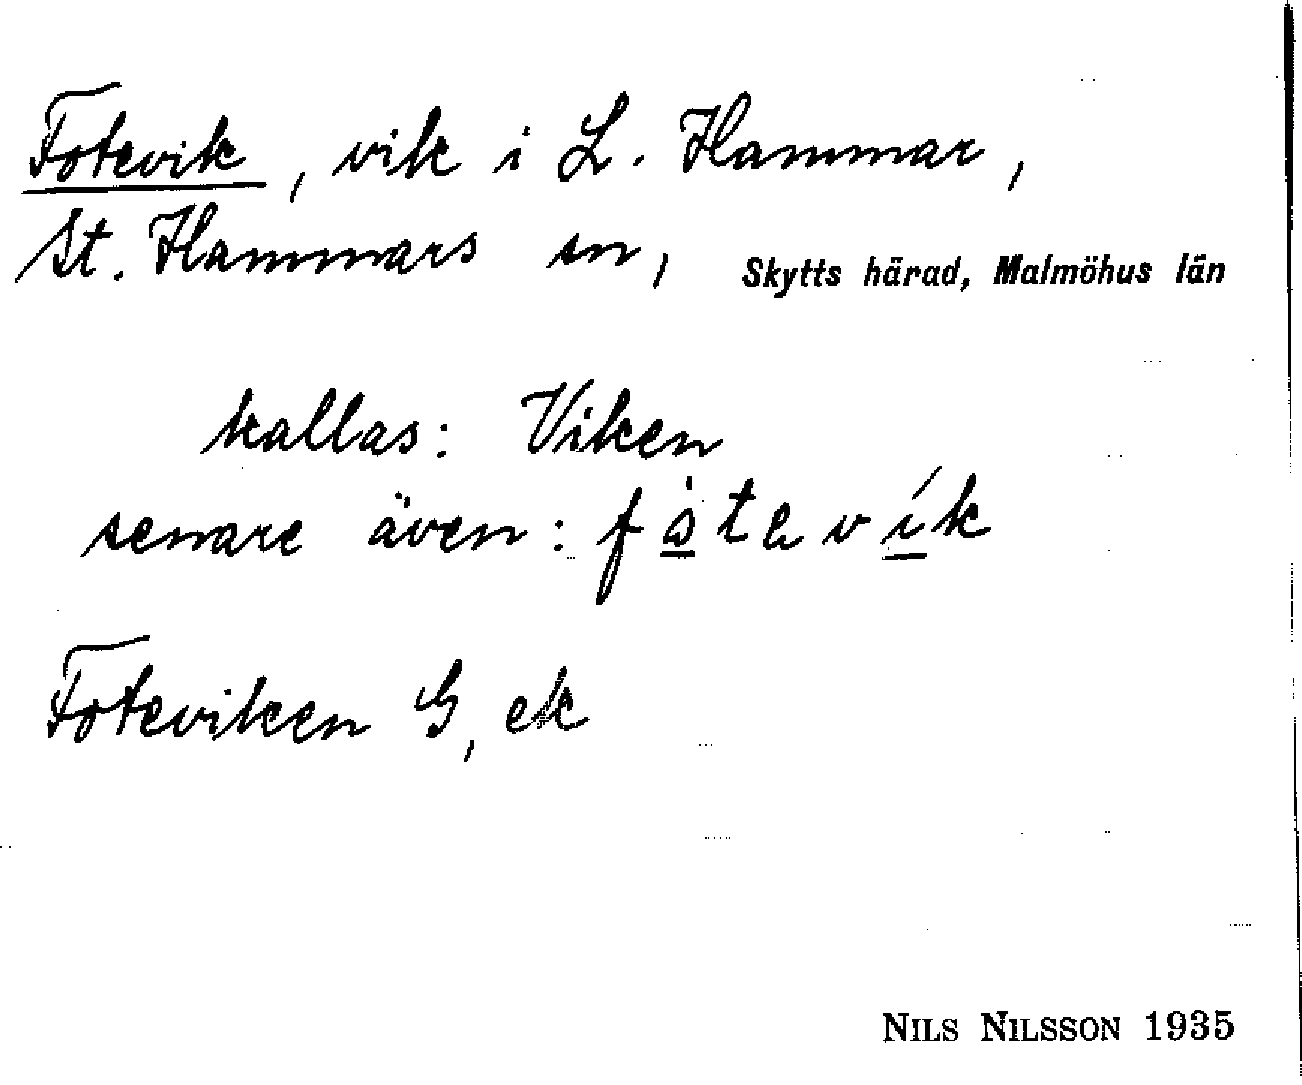 Fotevik, vik i L. Hammar,
St. Hammars sn, Skytts härad, Malmöhus län
kallas: Viken
senare även: fòtevík
Foteviken G, ek
NILS NILSSON 1935